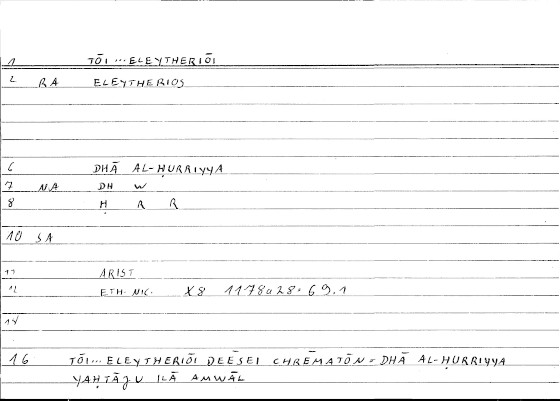 1 TŌI ... ELEYTHERIŌI
2 RA ELEYTHERIOS
6 DHĀ AL-ḤURRIYYA
7 NA DH W
8 Ḥ R R
10 SA
11 ARIST
12 ETH. NIC. X8 1178a28 = 69.1
14
16 TŌI ... ELEYTHERIŌI DEĒSEI CHRĒMATŌN = DHĀ AL-ḤURRIYYA
YAḤTĀJU ILĀ AMWĀL